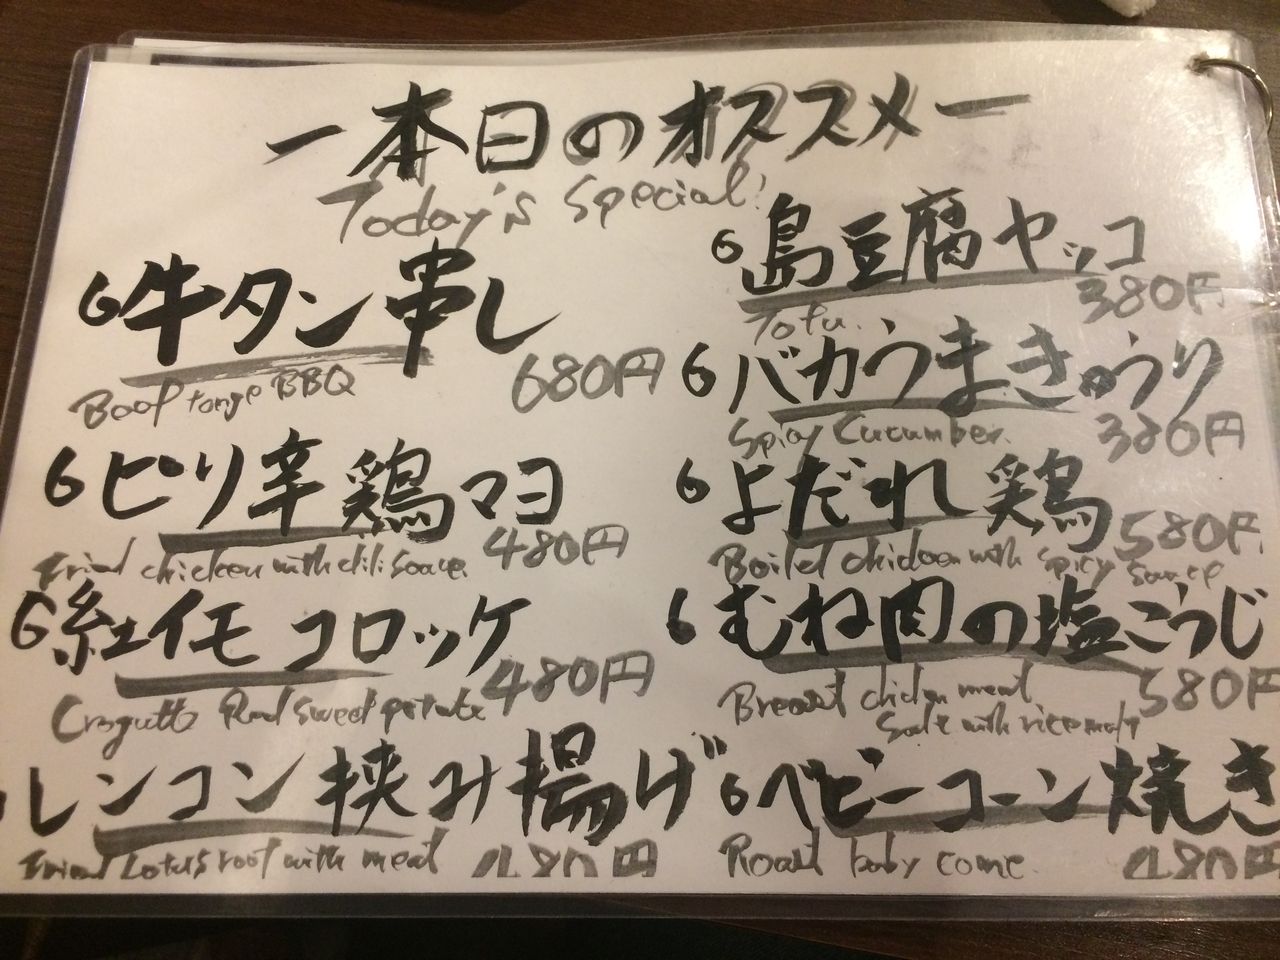 ー本日のオススメー
Today's Special!
牛タン串し
Beef tonge BBQ 680円
ピリ辛鶏マヨ
Fried chicken with chili sauce 480円
紅イモコロッケ
Croquette Red sweet potate 480円
レンコン挟み揚げ
Fried Lotus root with meat 480円
島豆腐ヤッコ
Tofu. 380円
バカうまきゅうり
Spicy Cucumber. 380円
よだれ鶏
Boiled chicken with spicy sauce 580円
むね肉の塩こうじ
Breast chicken meat 580円
Salt with rice malt
ベビーコーン焼き
Roast baby corne. 480円